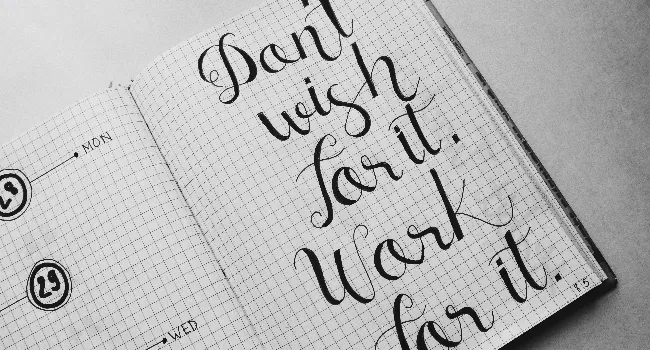 28
MON
29
WED
Don't
wish
for it.
Work
for it.